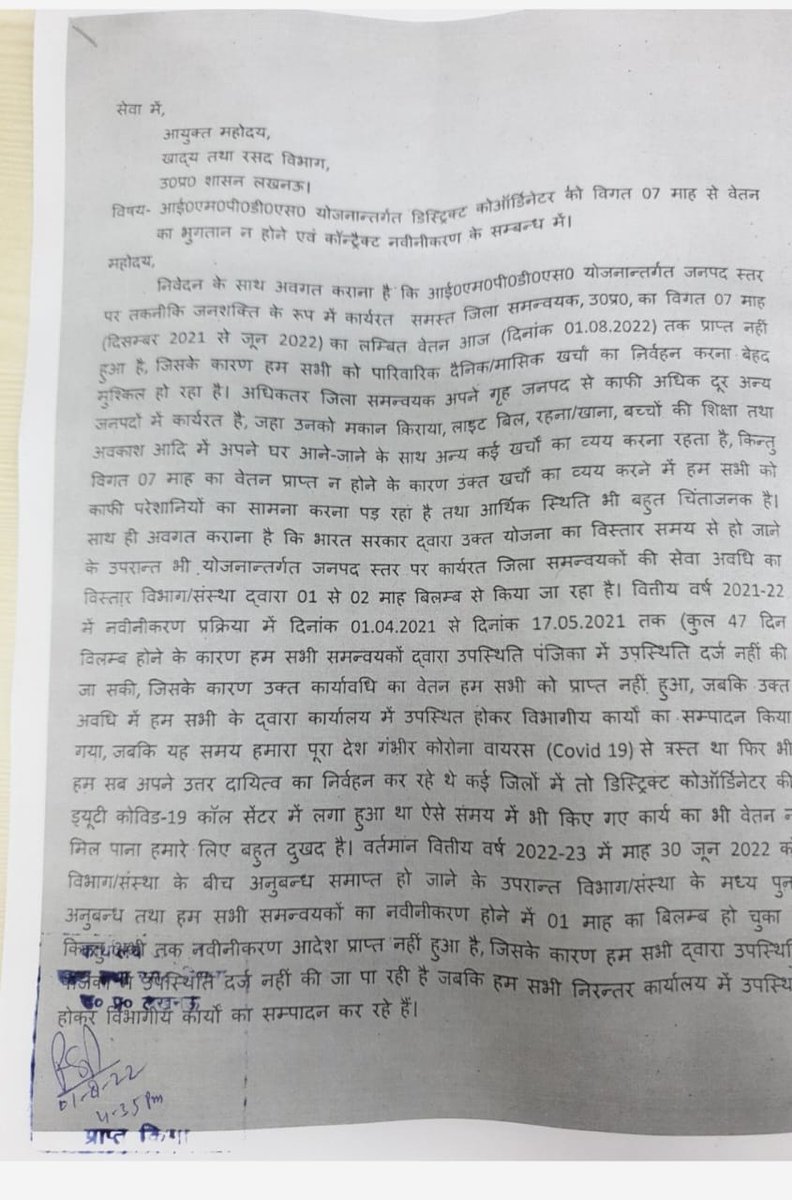 सेवा में,
आयुक्त महोदय,
खाद्य तथा रसद विभाग,
उ0प्र0 शासन लखनऊ।
विषय- आई0एम0पी0डी0एस0 योजनान्तर्गत डिस्ट्रिक्ट कोऑर्डिनेटर को विगत 07 माह से वेतन
का भुगतान न होने एवं कॉन्ट्रैक्ट नवीनीकरण के सम्बन्ध में।
महोदय,
निवेदन के साथ अवगत कराना है कि आई0एम0पी0डी0एस0 योजनान्तर्गत जनपद स्तर
पर तकनीकि जनशक्ति के रूप में कार्यरत समस्त जिला समन्वयक, उ0प्र0, का विगत 07 माह
(दिसम्बर 2021 से जून 2022) का लम्बित वेतन आज (दिनांक 01.08.2022) तक प्राप्त नहीं
हुआ है, जिसके कारण हम सभी को पारिवारिक दैनिक/मासिक खर्चो का निर्वहन करना बेहद
मुश्किल हो रहा है। अधिकतर जिला समन्वयक अपने गृह जनपद से काफी अधिक दूर अन्य
जनपदों में कार्यरत है, जहा उनको मकान किराया, लाइट बिल, रहना/खाना, बच्चों की शिक्षा तथा
अवकाश आदि में अपने घर आने-जाने के साथ अन्य कई खर्चों का व्यय करना रहता है, किन्तु
विगत 07 माह का वेतन प्राप्त न होने के कारण उक्त खर्चो का व्यय करने में हम सभी को
काफी परेशानियों का सामना करना पड़ रहा है तथा आर्थिक स्थिति भी बहुत चिंताजनक है।
साथ ही अवगत कराना है कि भारत सरकार द्वारा उक्त योजना का विस्तार समय से हो जाने
के उपरान्त भी योजनान्तर्गत जनपद स्तर पर कार्यरत जिला समन्वयकों की सेवा अवधि का
विस्तार विभाग/संस्था द्वारा 01 से 02 माह बिलम्ब से किया जा रहा है। वित्तीय वर्ष 2021-22
में नवीनीकरण प्रक्रिया में दिनांक 01.04.2021 से दिनांक 17.05.2021 तक (कुल 47 दिन
विलम्ब होने के कारण हम सभी समन्वयकों द्वारा उपस्थिति पंजिका में उपस्थिति दर्ज नहीं की
जा सकी, जिसके कारण उक्त कार्यावधि का वेतन हम सभी को प्राप्त नहीं हुआ, जबकि उक्त
अवधि में हम सभी के द्वारा कार्यालय में उपस्थित होकर विभागीय कार्यो का सम्पादन किया
गया, जबकि यह समय हमारा पूरा देश गंभीर कोरोना वायरस (Covid 19) से त्रस्त था फिर भी
हम सब अपने उत्तर दायित्व का निर्वहन कर रहे थे कई जिलों में तो डिस्ट्रिक्ट कोऑर्डिनेटर की
ड्यूटी कोविड-19 कॉल सेंटर में लगा हुआ था ऐसे समय में भी किए गए कार्य का भी वेतन न
मिल पाना हमारे लिए बहुत दुखद है। वर्तमान वित्तीय वर्ष 2022-23 में माह 30 जून 2022 को
विभाग/संस्था के बीच अनुबन्ध समाप्त हो जाने के उपरान्त विभाग/संस्था के मध्य पुन
अनुबन्ध तथा हम सभी समन्वयकों का नवीनीकरण होने में 01 माह का बिलम्ब हो चुका
तक नवीनीकरण आदेश प्राप्त नहीं हुआ है, जिसके कारण हम सभी द्वारा उपस्थि
उपस्थिति दर्ज नहीं की जा पा रही है जबकि हम सभी निरन्तर कार्यालय में उपस्थि
उ0 प्र0 लखनऊ
होकर विभागीय कार्यो का सम्पादन कर रहे हैं।
01-8-22
4-35 Pm
प्राप्त किया